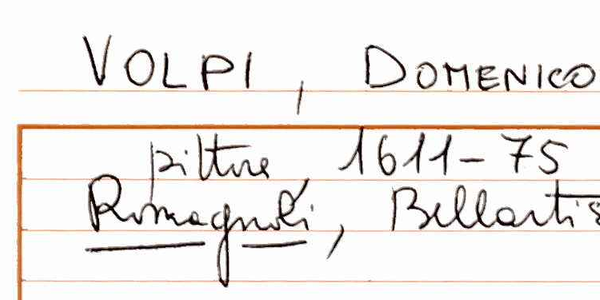 VOLPI, DOMENICO
pittore, 1611-75
Romagnoli, Bellartis